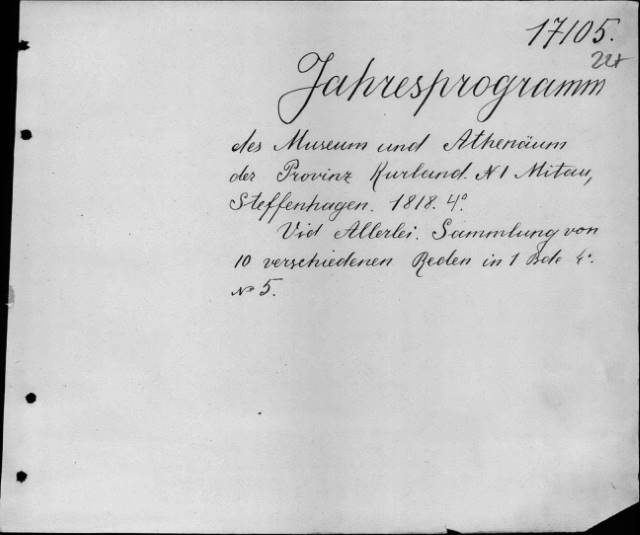 17105.
Jahresprogramm
des Museum und Athenäum
der Provinz Kurland. N1 Mitau,
Steffenhagen. 1818. 4°.
Vid Allerlei. Sammlung von
10 verschiedenen Reden in 1 Bde 4°.
№ 5.